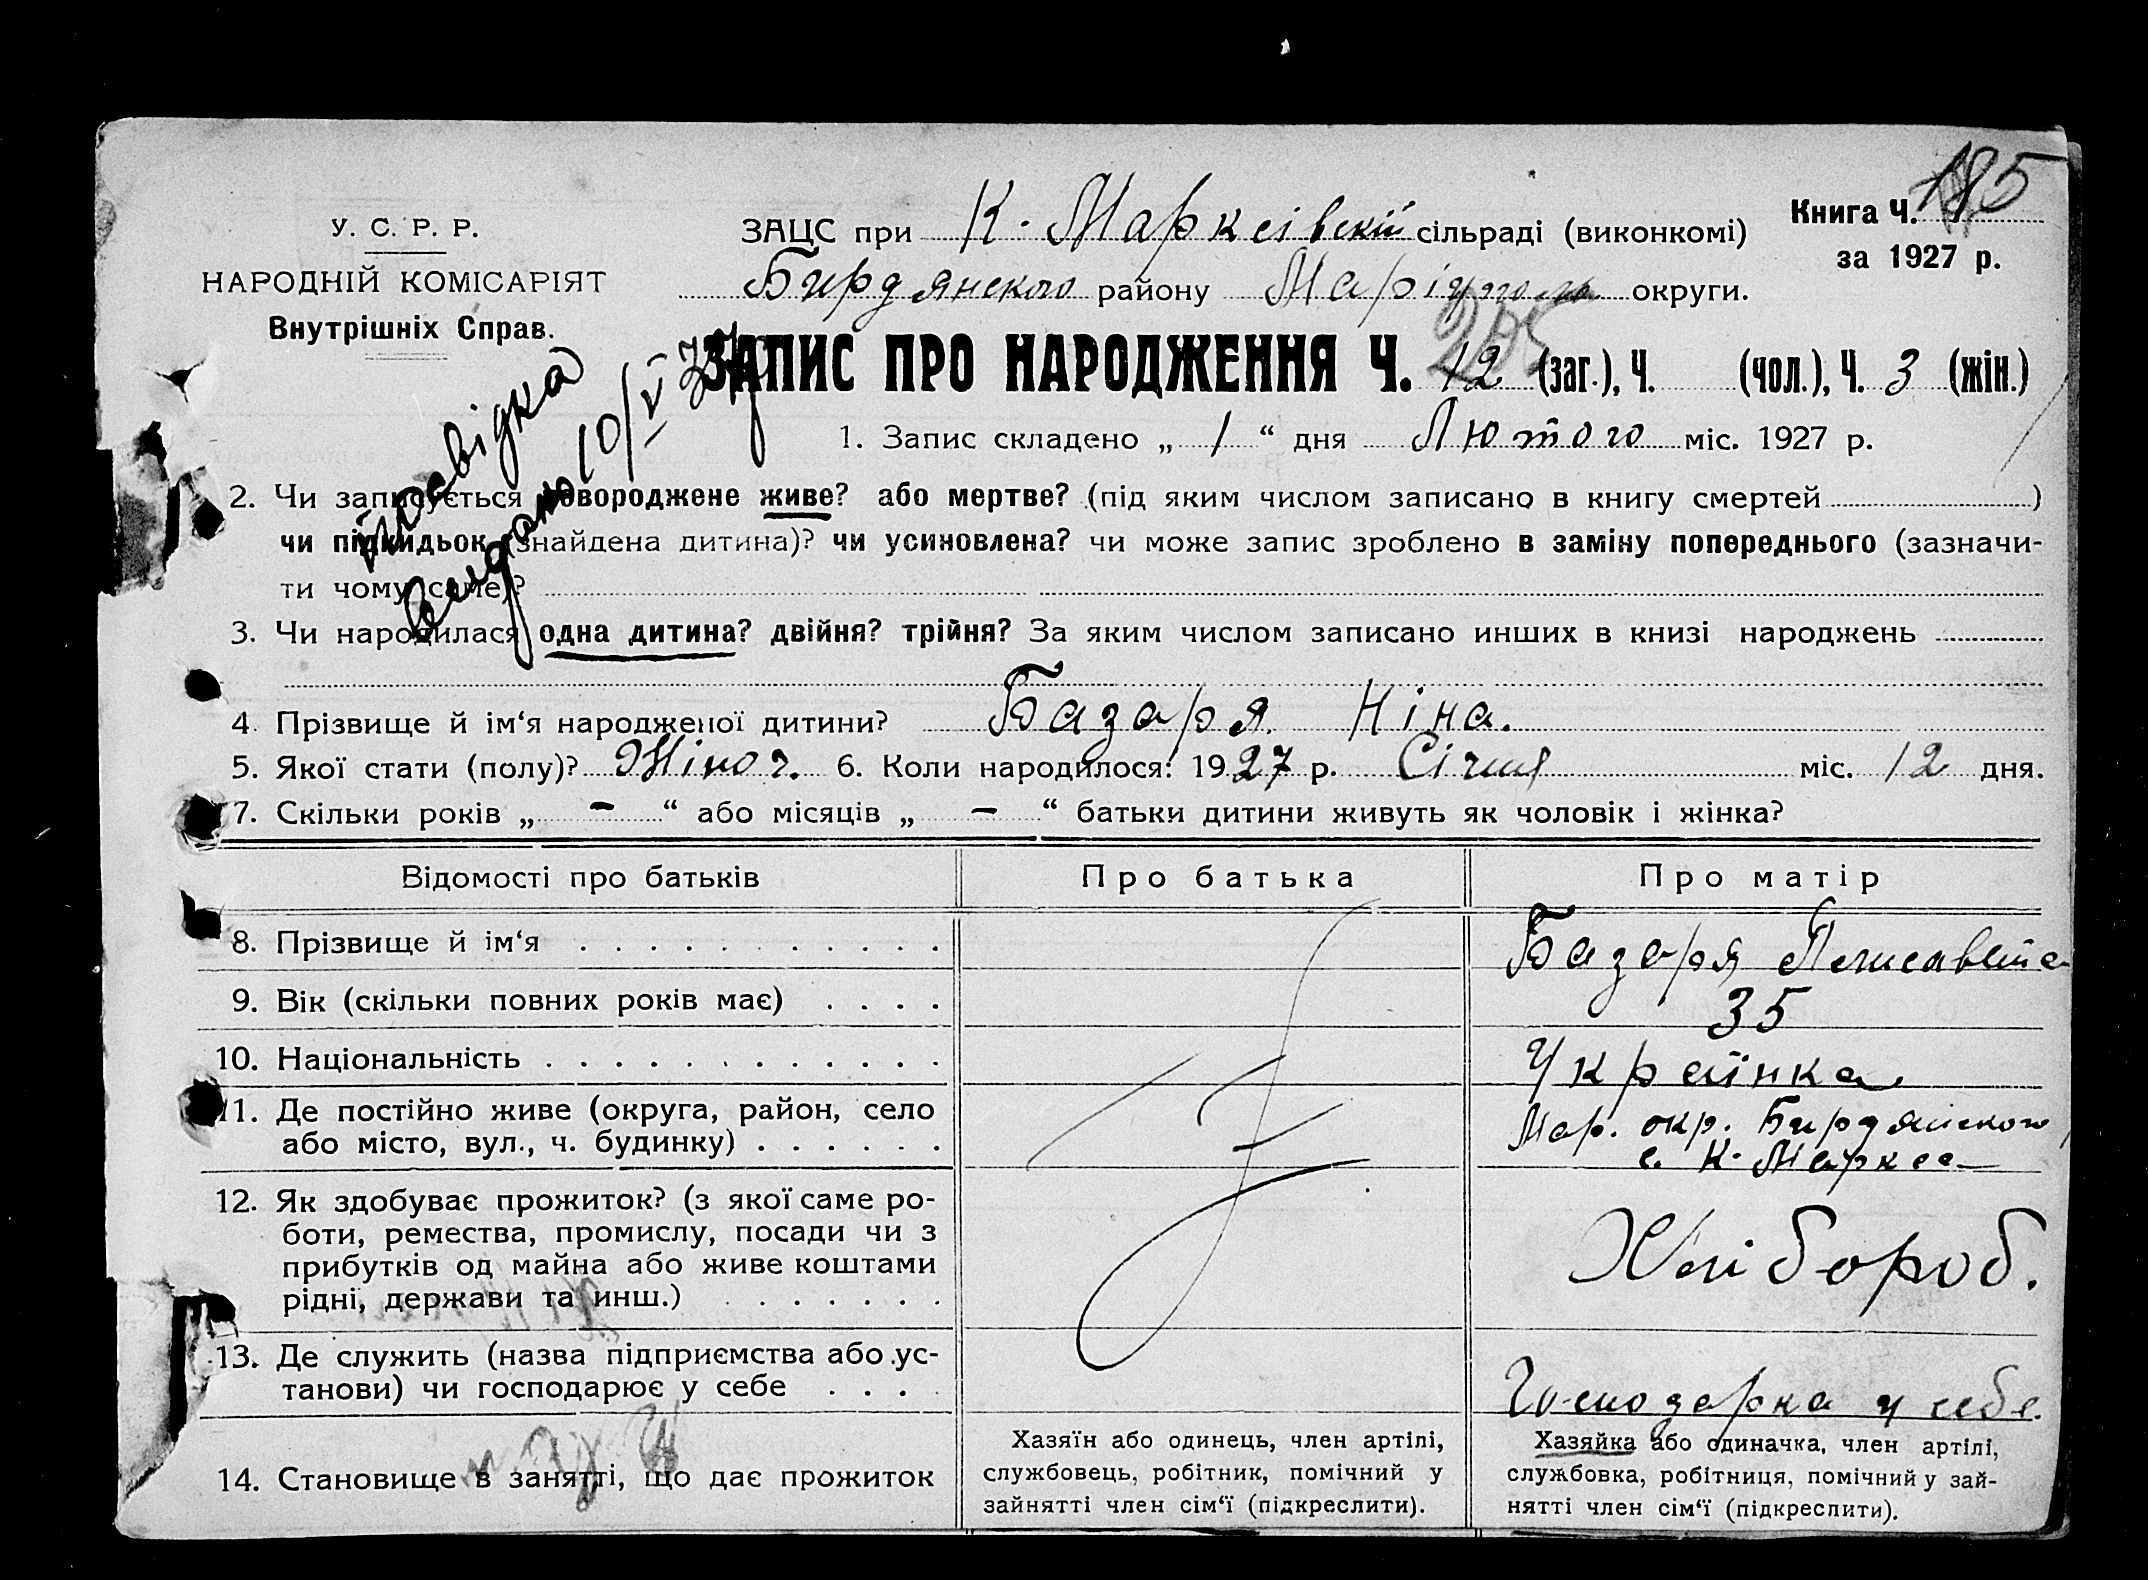 185
У. С. Р. Р.
НАРОДНІЙ КОМІСАРІЯТ
Внутрішніх Справ.
ЗАЦС при К. Марксівскій сільраді (виконкомі)
Бирдянского району Маріуполь округи.
Книга Ч.
за 1927 р.
Посвідка
Видано 10/V
205
ЗАПИС ПРО НАРОДЖЕННЯ Ч. 12 (заг.), Ч. (чол.), Ч. 3 (жін.)
1. Запис складено „ 1 “ дня Лютого міс. 1927 р.
2. Чи записується новороджене живе? або мертве? (під яким числом записано в книгу смертей )
чи підкидьок (знайдена дитина)? чи усиновлена? чи може запис зроблено в заміну попереднього (зазначи-
ти чому саме)?
3. Чи народилася одна дитина? двійня? трійня? За яким числом записано инших в книзі народжень
4. Прізвище й ім‘я народженої дитини? Базаря Ніна.
5. Якої стати (полу)? Жіноч. 6. Коли народилося: 1927 р. Січня міс. 12 дня.
7. Скільки років „ – “ або місяців „ – “ батьки дитини живуть як чоловік і жінка?
Відомості про батьків Про батька Про матір
8. Прізвище й ім‘я . . . . . . . . . . . Базаря Лисавета
9. Вік (скільки повних років має) . . . . 35
10. Національність . . . . . . . . . . . . Украінка
11. Де постійно живе (округа, район, село Мар. окр. Бирдянского
або місто, вул., ч. будинку) . . . . . . с. К. Маркса
12. Як здобуває прожиток? (з якої саме ро-
боти, ремества, промислу, посади чи з
прибутків од майна або живе коштами Хлібороб.
рідні, держави та инш.) . . . . . . .
13. Де служить (назва підприємства або ус-
танови) чи господарює у себе . . . . Господарка у себе.
14. Становище в занятті, що дає прожиток
Хазяїн або одинець, член артілі,
службовець, робітник, помічний у
зайнятті член сім‘ї (підкреслити).
Хазяйка або одиначка, член артілі,
службовка, робітниця, помічний у зай-
нятті член сім‘ї (підкреслити).